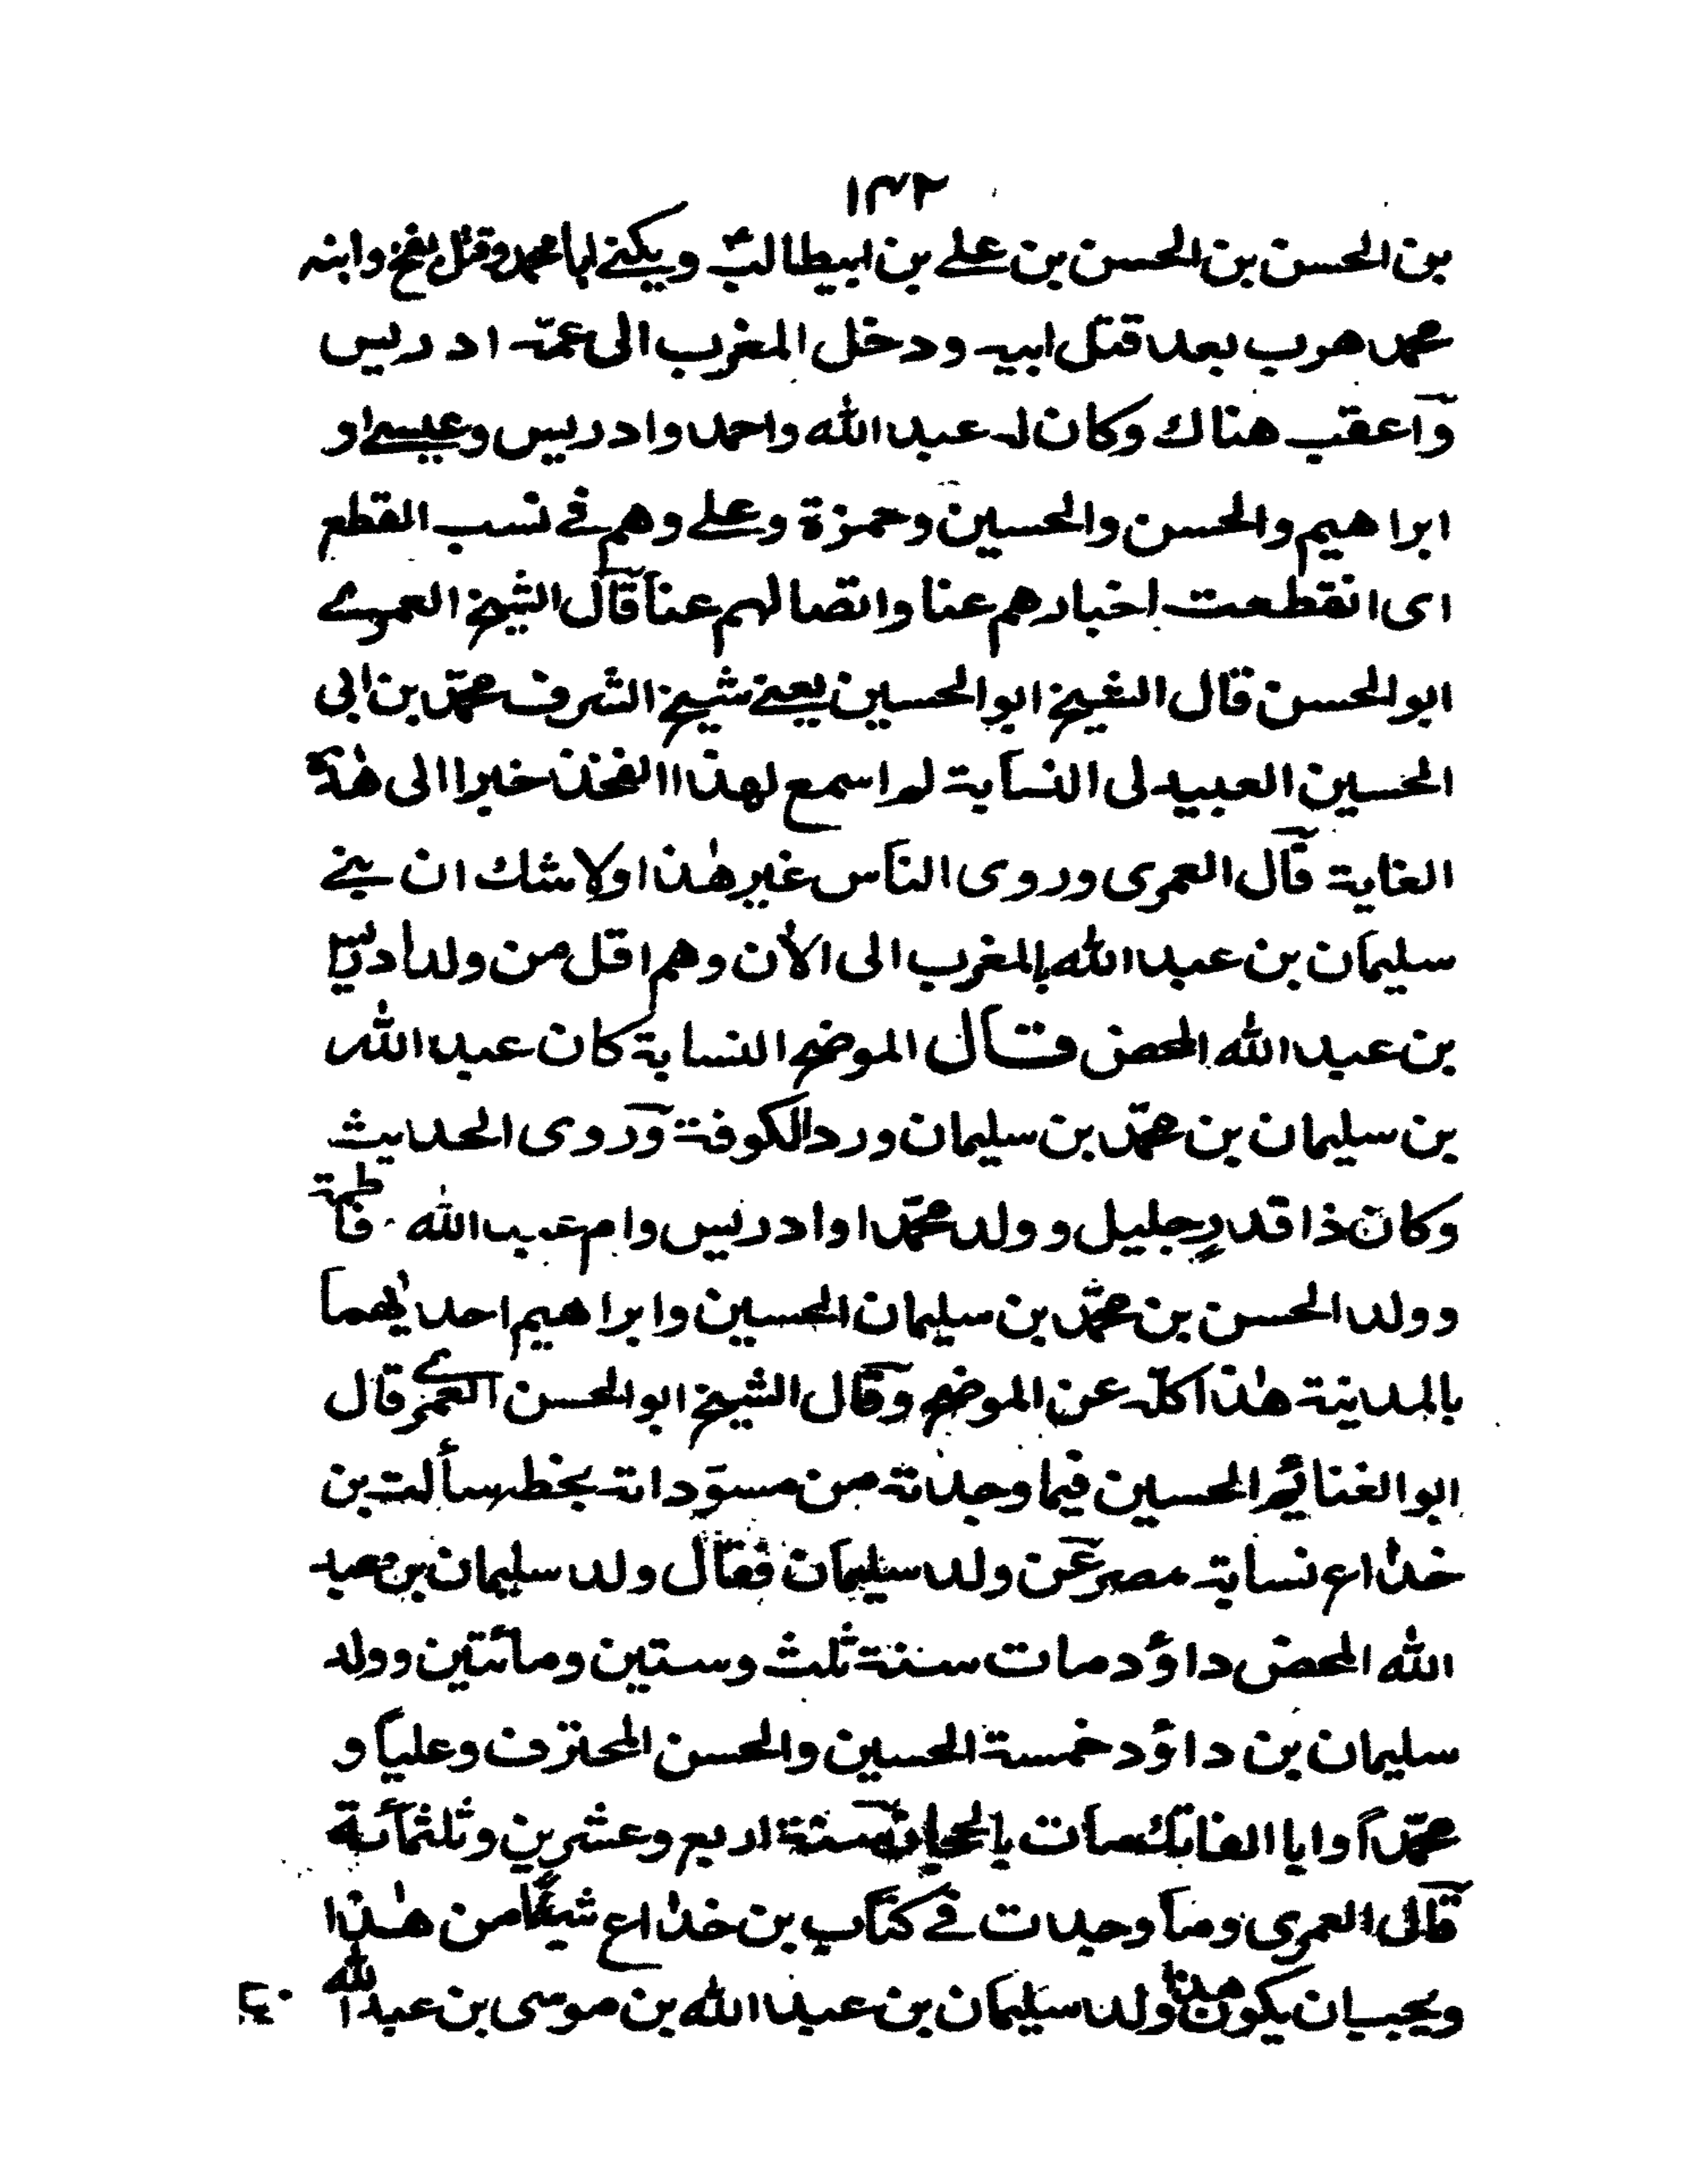 ١٣٢
بن الحسن بن الحسن بن علے بن ابیطالبؑ ویکنے ابا محمد وقتل بفخ وابنه
محمد هرب بعد قتل ابیه ودخل المغرب الی عمّه ادریس
وآعقب هناك وكان له عبدالله واحمد وادریس وعیسے او
ابراهیم والحسن والحسین وحمزة وعلے وهم فے نسب القطع
ای انقطعت اخبارهم عنا واتصالهم عنا قآل الشیخ العمرے
ابوالحسن قال الشیخ ابوالحسین یعنے شیخ الشرف محمّد بن ابی
الحسین العبیدلی النسابة لم اسمع لهذا الفخذ خبرا الی هٰذه
الغایة قآل العمری وروی الناس غیر هٰذا ولاشك ان بنے
سلیمان بن عبدالله بالمغرب الی الأن وهم اقل من ولد ادریس
بن عبدالله المحض قـال الموضح النسابة كان عبدالله
بن سلیمان بن محمّد بن سلیمان ورد الكوفة وروی الحدیث
وكان ذا قدرٍ جلیل وولد محمّدا وادریس وام عبدالله فاطمة
وولد الحسن بن محمّد بن سلیمان الحسین وابراهیم احدیٰهما
بالمدینة هٰذا كله عن الموضح وقآل الشیخ ابوالحسن العمرے قال
ابوالغنائم الحسین فیما وجدته من مسوّداته بخطه سألت بن
خذاع نسابة مصر عن ولد سلیمان فقال ولد سلیمان بن عبد
الله المحض داؤد مات سنة ثلث وستین ومائتین وولد
سلیمان بن داؤد خمسة الحسین والحسن المحترف وعلیا و
محمّداً وابا الفاتك مات بالحجاز سنة اربع وعشرین وثلثمأئة
قآل العمری وما وجدت فے كتاب بن خذاع شیئًا من هٰذا
ویجب ان یكون هذا ولد سلیمان بن عبدالله بن موسی بن عبدالله